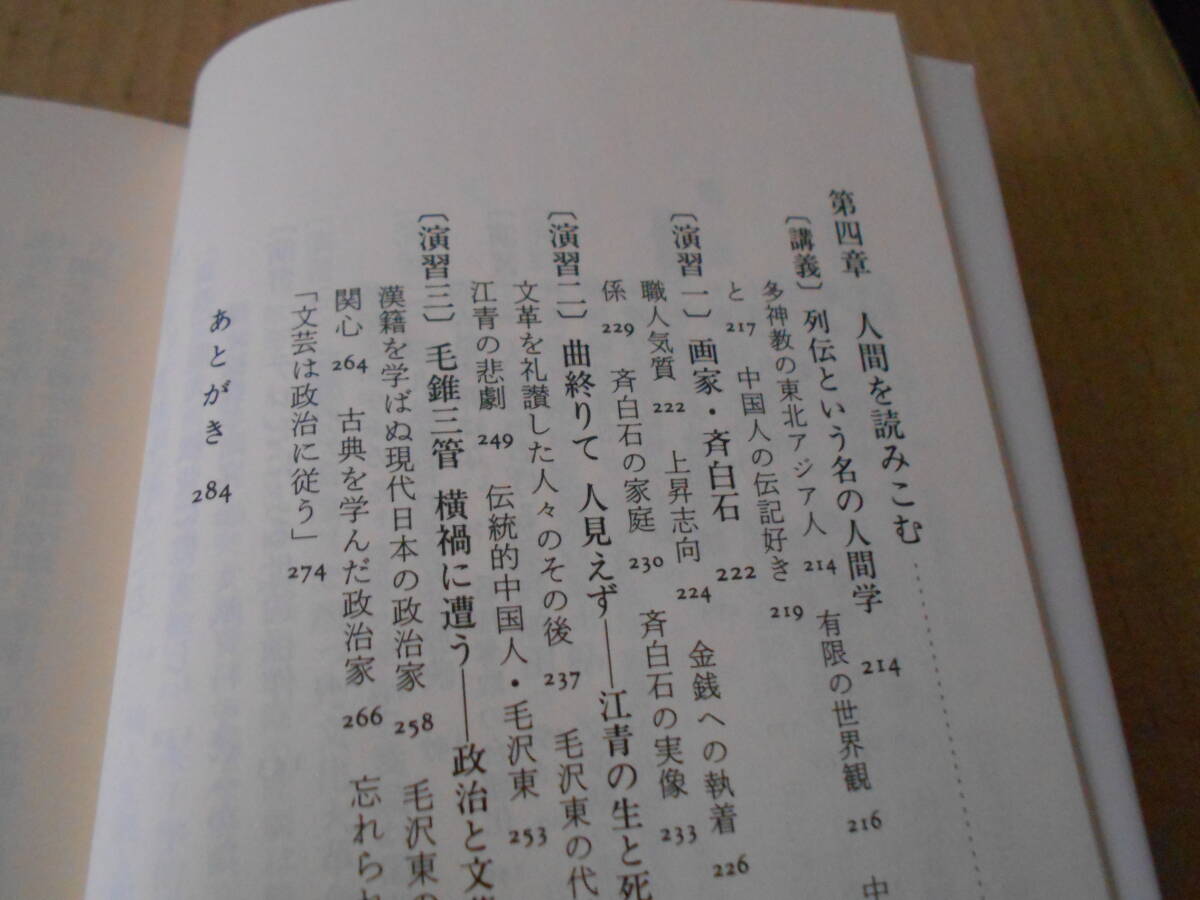 第四章 人間を読みこむ
〔講義〕 列伝という名の人間学 214
多神教の東北アジア人 214 有限の世界観 216 中
と 217 中国人の伝記好き 219
〔演習一〕 画家・斉白石 222
職人気質 222 上昇志向 224 金銭への執着 226
係 229 斉白石の家庭 230 斉白石の実像 233
〔演習二〕 曲終りて 人見えず——江青の生と死
文革を礼讃した人々のその後 237 毛沢東の代
江青の悲劇 249 伝統的中国人・毛沢東 253
〔演習三〕 毛錐三管 横禍に遭う——政治と文
漢籍を学ばぬ現代日本の政治家 258 毛沢東の
関心 264 古典を学んだ政治家 266 忘れられ
「文芸は政治に従う」 274
あとがき 284